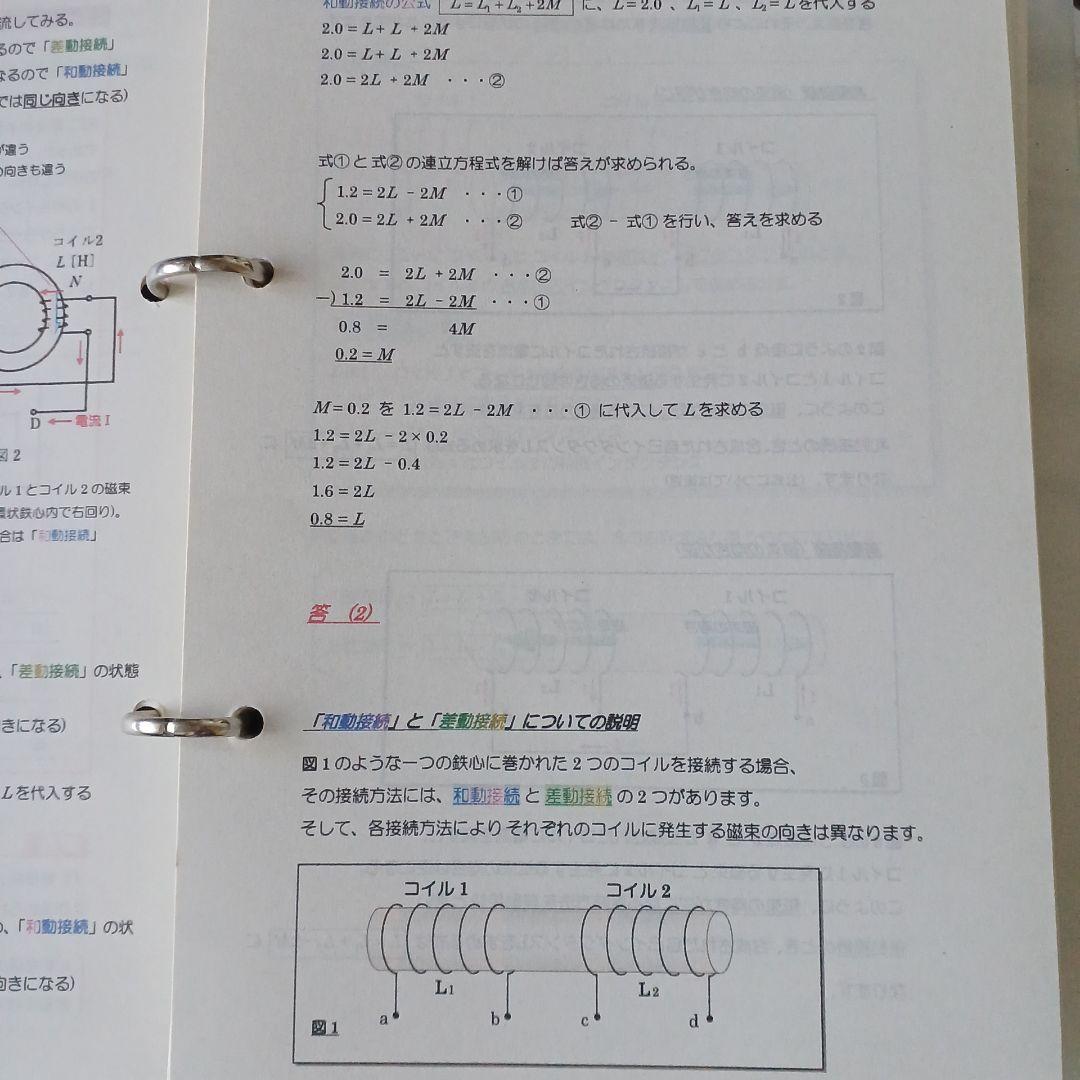 流してみる。
るので「差動接続」
なるので「和動接続」
では同じ向きになる)
が違う
の向きも違う
コイル2
L [H]
N
D ← 電流 I
図2
ル1とコイル2の磁束
環状鉄心内で右回り)。
合は「和動接続」
、「差動接続」の状態
向きになる)
Lを代入する
め、「和動接続」の状
向きになる)
和動接続の公式 L=L₁+L₂+2M に、L=2.0 、L₁=L 、L₂=Lを代入する
2.0=L+L +2M
2.0=L+L +2M
2.0=2L +2M ・・・②
式①と式②の連立方程式を解けば答えが求められる。
1.2=2L -2M ・・・①
2.0=2L +2M ・・・② 式② - 式①を行い、答えを求める
2.0 = 2L +2M ・・・②
-) 1.2 = 2L -2M ・・・①
0.8 = 4M
0.2=M
M=0.2 を 1.2=2L -2M ・・・① に代入してLを求める
1.2=2L -2×0.2
1.2=2L -0.4
1.6=2L
0.8=L
答 (2)
「和動接続」と「差動接続」についての説明
図1のような一つの鉄心に巻かれた2つのコイルを接続する場合、
その接続方法には、和動接続と差動接続の2つがあります。
そして、各接続方法によりそれぞれのコイルに発生する磁束の向きは異なります。
コイル1 コイル2
L₁ L₂
a b c d
図1